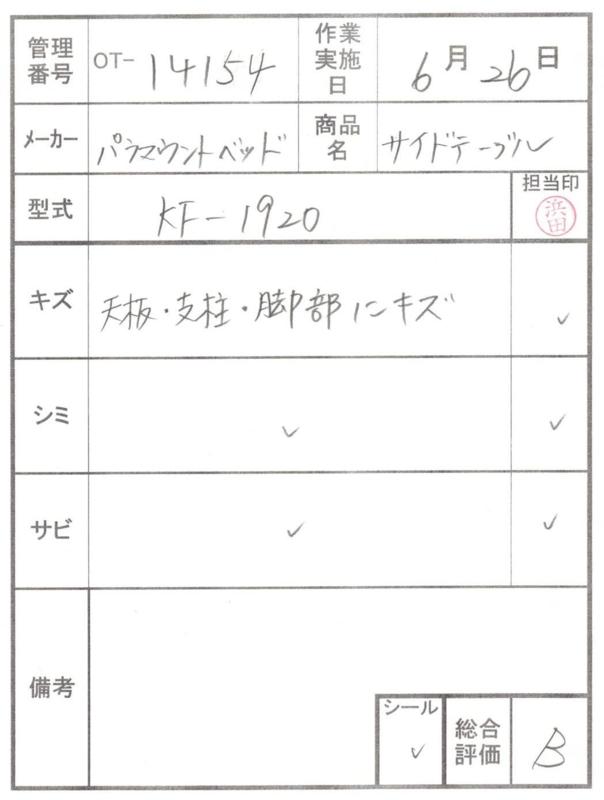 管理番号 OT-14154 作業実施日 6月26日
メーカー パラマウントベッド 商品名 サイドテーブル
型式 KF-1920 担当印 浜田
キズ 天板・支柱・脚部にキズ ✓
シミ ✓ ✓
サビ ✓ ✓
備考
シール ✓ 総合評価 B